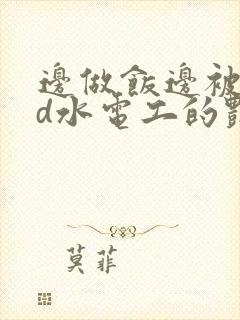 邊做飯邊被
d水電工的
莫菲